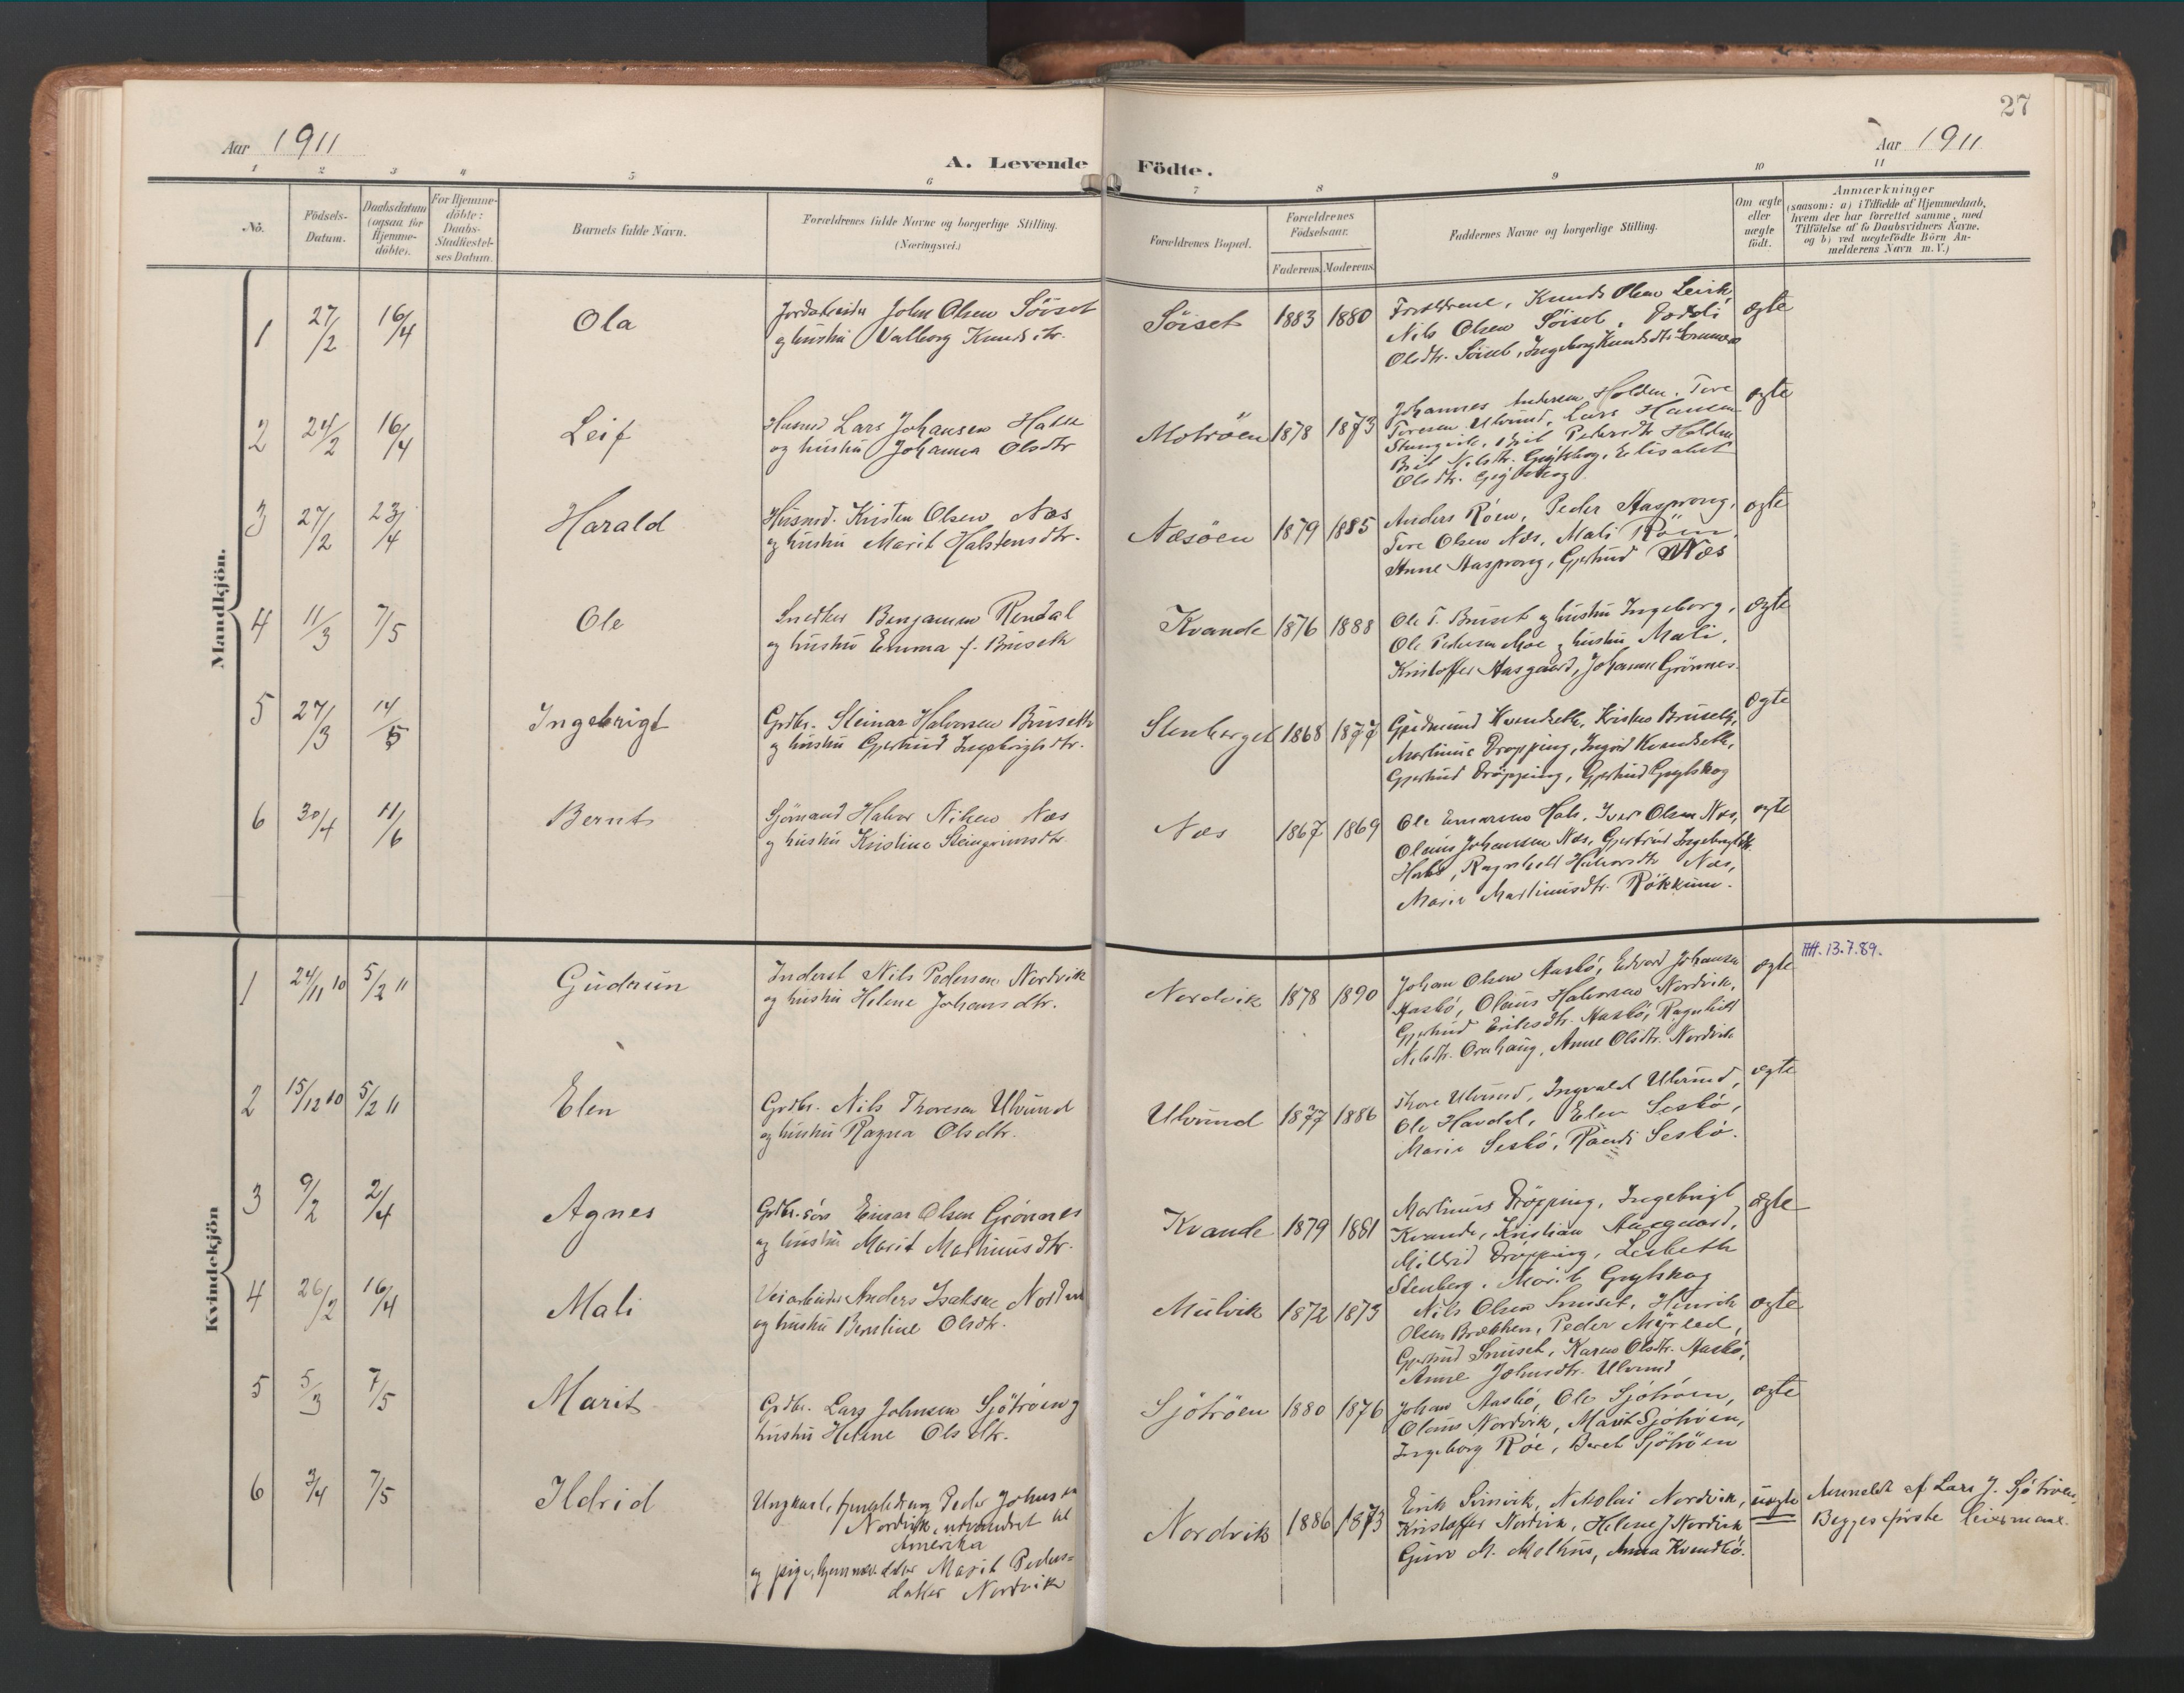 27
Aar 1911
Aar 1911
A. Levende Födte.
1 2 3 4 5 6 7 8 9 10 11
Nö.
Födsels-
Datum.
Daabsdatum
(ogsaa for
Hjemme-
döbte).
For Hjemme-
döbte:
Daabs-
Stadfæstel-
ses Datum.
Barnets fulde Navn.
Forældrenes fulde Navne og borgerlige Stilling.
(Næringsvei.)
Forældrenes Bopæl.
Forældrenes
Födselsaar.
Faderens. Moderens.
Faddernes Navne og borgerlige Stilling.
Om ægte
eller
uægte
födt.
Anmærkninger
(saasom: a) i Tilfælde af Hjemmedaab,
hvem der har forrettet samme, med
Tilföielse af to Daabsvidners Navne,
og b) ved uægtefödte Börn An-
melderens Navn m. V.)
Mandkjön.
1 27/2 16/4 Ola
John Olsen Söiset
og hustru Valborg Knudsdtr.
Söiset 1883 1880
Forældrene, Knud Olsen
Nils Olsen Söiset,
Olsdtr. Söiset, Ingeborg Knudsdtr.
ægte
2 24/2 16/4 Leif
Husmd Lars Johansen Halle
og hustru Johanna Olsdtr
Motröen 1878 1873
Johannes Andersen Holden, Tore
Toresen Ulvund, Lars Hansen
Pedersdtr Holden
Brit Nilsdtr. Grytskog, Elisabet
Olsdtr. Grytskog
ægte
3 27/2 23/4 Harald
Husmd. Kristen Olsen Næs
og hustru Marit Halstensdtr.
Næsöen 1879 1885
Anders Röen, Peder Aasprong,
Tore Olsen Næs, Mali Röen,
Anne Aasprong, Gjertrud Næs
ægte
4 11/3 7/5 Ole
Snedker Benjamin Rendal
og hustru Emma f. Bruseth
Kvande 1876 1888
Ole T. Bruset og hustru Ingeborg,
Ole Pedersen Moe og hustru Mali,
Kristoffer Aasgaard, Johanne Grönnes.
ægte
5 27/3 14/5 Ingebrigt
Grdbr. Steinar Halvorsen Bruseth
og hustru Gjertrud Ingebrigtsdtr.
Stenberget 1868 1877
Gudmund Kvendseth, Kristen Bruseth,
Martinus Dröpping, Ingrid Kvendseth,
Gjertrud Dröpping, Gjertrud Grytskog
ægte
6 30/4 11/6 Bernt
Sjömand Halvor Nilsen Næs
og hustru Kristine Steingrimsdtr.
Næs 1867 1869
Ole Hals, Iver Olsen Næs,
Olaus Johansen Næs, Gjertrud Ingebrigtsdtr.
Hals, Ragnhild Halvorsdtr Næs,
Marie Martinusdtr. Rökkum.
ægte
Kvindekjön
1 24/11 10 5/2 11 Gudrun
Inderst Nils Pedersen Nordvik
og hustru Helene Johansdtr.
Nordvik 1878 1890
Johan Olsen Aasbö, Edvard Johansen
Aasbö, Olaus Halvorsen Nordvik,
Gjertrud Eriksdtr. Aasbö, Ragnhild
Nilsdtr. Anne Olsdtr. Nordvik
ægte
13.7.89.
2 15/12 10 5/2 11 Elen
Grdbr. Nils Thoresen Ulvund
og hustru Ragna Olsdtr.
Ulvund 1877 1886
Thore Ulvund, Ingvald Ulvund,
Ole Havdal, Elen Sesbö,
Marie Sesbö, Randi Sesbö.
ægte
3 9/2 2/4 Agnes
Grdbr. sön Einar Olsen Grönnes
og hustru Marit Martinusdtr.
Kvande 1879 1881
Martinus Dröpping, Ingebrigt
Kvande, Kristian Aasgaard,
Mildrid Dröpping, Lisbeth
Stenberg, Marit Grytskog
ægte
4 26/2 16/4 Mali
Veiarbeider Anders Isaksen
og hustru Berntine Olsdtr.
Mulvik 1872 1873
Nils Olsen Smiset, Hinrik
Olsen Brækken, Peder Myrbed,
Gjertrud Smiset, Karen Olsdtr. Aasbö,
Anne Johnsdtr. Ulvund
ægte
5 5/3 7/5 Marit
Grdbr. Lars Johnsen Sjötröen og
hustru Helene Olsdtr.
Sjötröen 1880 1876
Johan Aasbö, Ole Sjötröen,
Olaus Nordvik, Marit Sjötröen,
Ingeborg Röe, Beret Sjötröen
ægte
6 3/4 7/5 Ildrid
Ungkarl, Peder Johnsen
Nordvik, utvandret til
Amerika
og pige, Marit Peders-
datter Nordvik
Nordvik 1886 1873
Erik Nikolai Nordvik,
Kristoffer Nordvik, Helene J Nordvik
Guro M. Melhus, Anna Kvendbö.
uægte
Anmeldt af Lars J. Sjötröen,
Begges förste leiermaal.